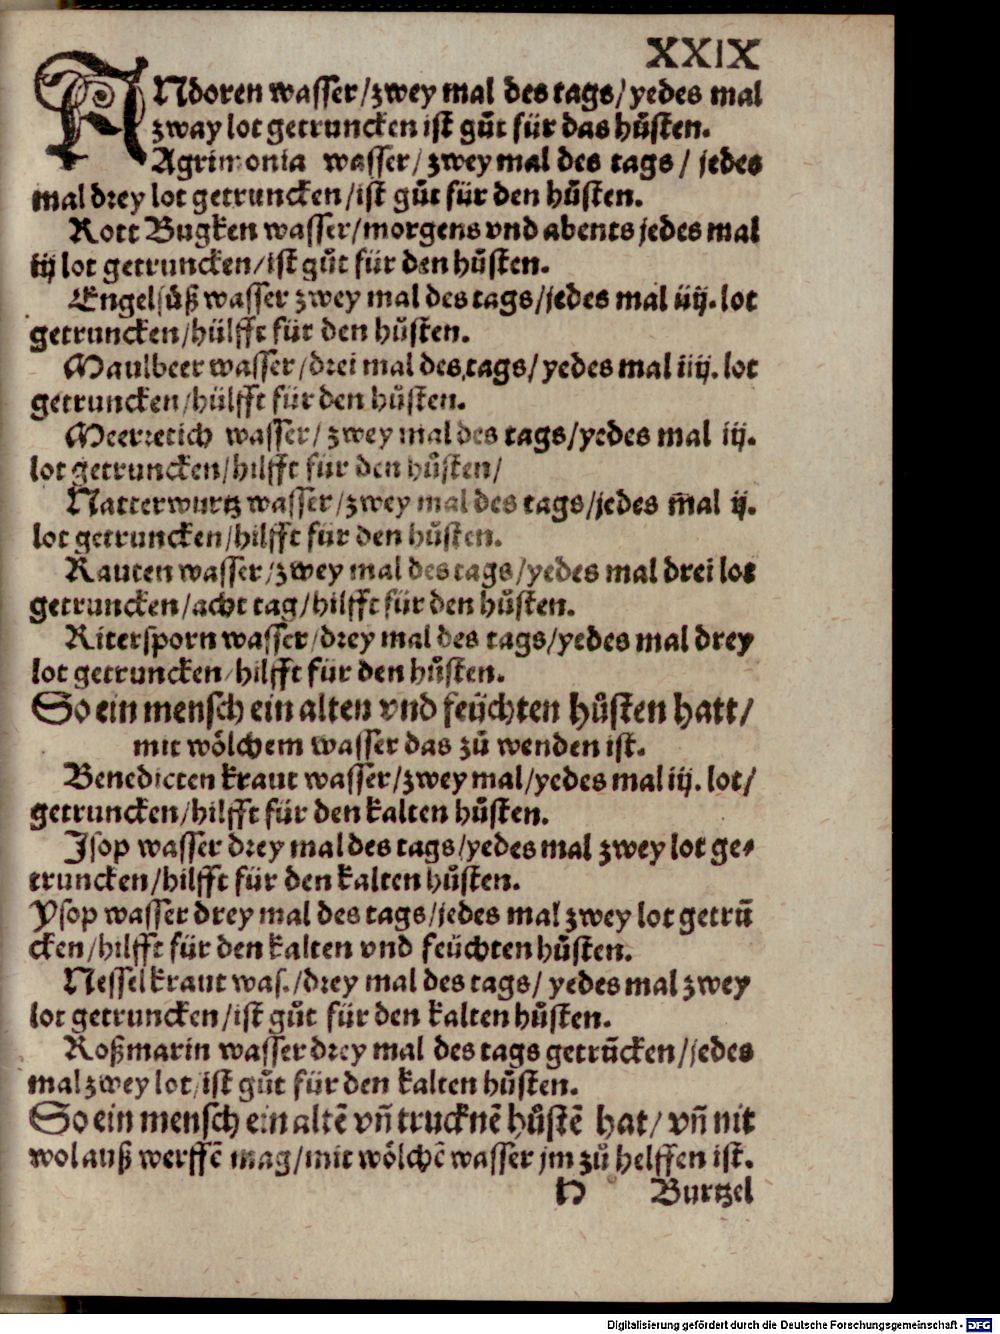 XXIX
ANdoren wasser/zwey mal des tags/yedes mal
zway lot getruncken ist gůt für das hůsten.
Agrimonia wasser/zwey mal des tags/ jedes
mal drey lot getruncken/ist gůt für den hůsten.
Rott Bugken wasser/morgens vnd abents jedes mal
iij lot getruncken/ist gůt für den hůsten.
Engelsüß wasser zwey mal des tags/jedes mal iiij. lot
getruncken/hülfft für den hůsten.
Maulbeer wasser/drei mal des tags/yedes mal iiij. lot
getruncken/hülfft für den hůsten.
Meerretich wasser/zwey mal des tags/yedes mal iij.
lot getruncken/hilfft für den hůsten/
Natterwurtz wasser/zwey mal des tags/jedes m̄al ij.
lot getruncken/hilfft für den hůsten.
Rauten wasser/zwey mal des tags/yedes mal drei lot
getruncken/acht tag/hilfft für den hůsten.
Ritersporn wasser/drey mal des tags/yedes mal drey
lot getruncken/hilfft für den hůsten.
So ein mensch ein alten vnd feüchten hůsten hatt/
mit wölchem wasser das zů wenden ist.
Benedicten kraut wasser/zwey mal/yedes mal iij. lot/
getruncken/hilfft für den kalten hůsten.
Jsop wasser drey mal des tags/yedes mal zwey lot ge-
truncken/hilfft für den kalten hůsten.
Ysop wasser drey mal des tags/jedes mal zwey lot getrū
cken/hilfft für den kalten vnd feüchten hůsten.
Nesselkraut was./drey mal des tags/ yedes mal zwey
lot getruncken/ist gůt für den kalten hůsten.
Roßmarin wasser drey mal des tags getrūcken/jedes
mal zwey lot/ist gůt für den kalten hůsten.
So ein mensch ein altē vñ trucknē hůstē hat/ vñ nit
wol auß werffē mag/mit wölchē wasser jm zů helffen ist.
H Burtzel
Digitalisierung gefördert durch die Deutsche Forschungsgemeinschaft - DFG